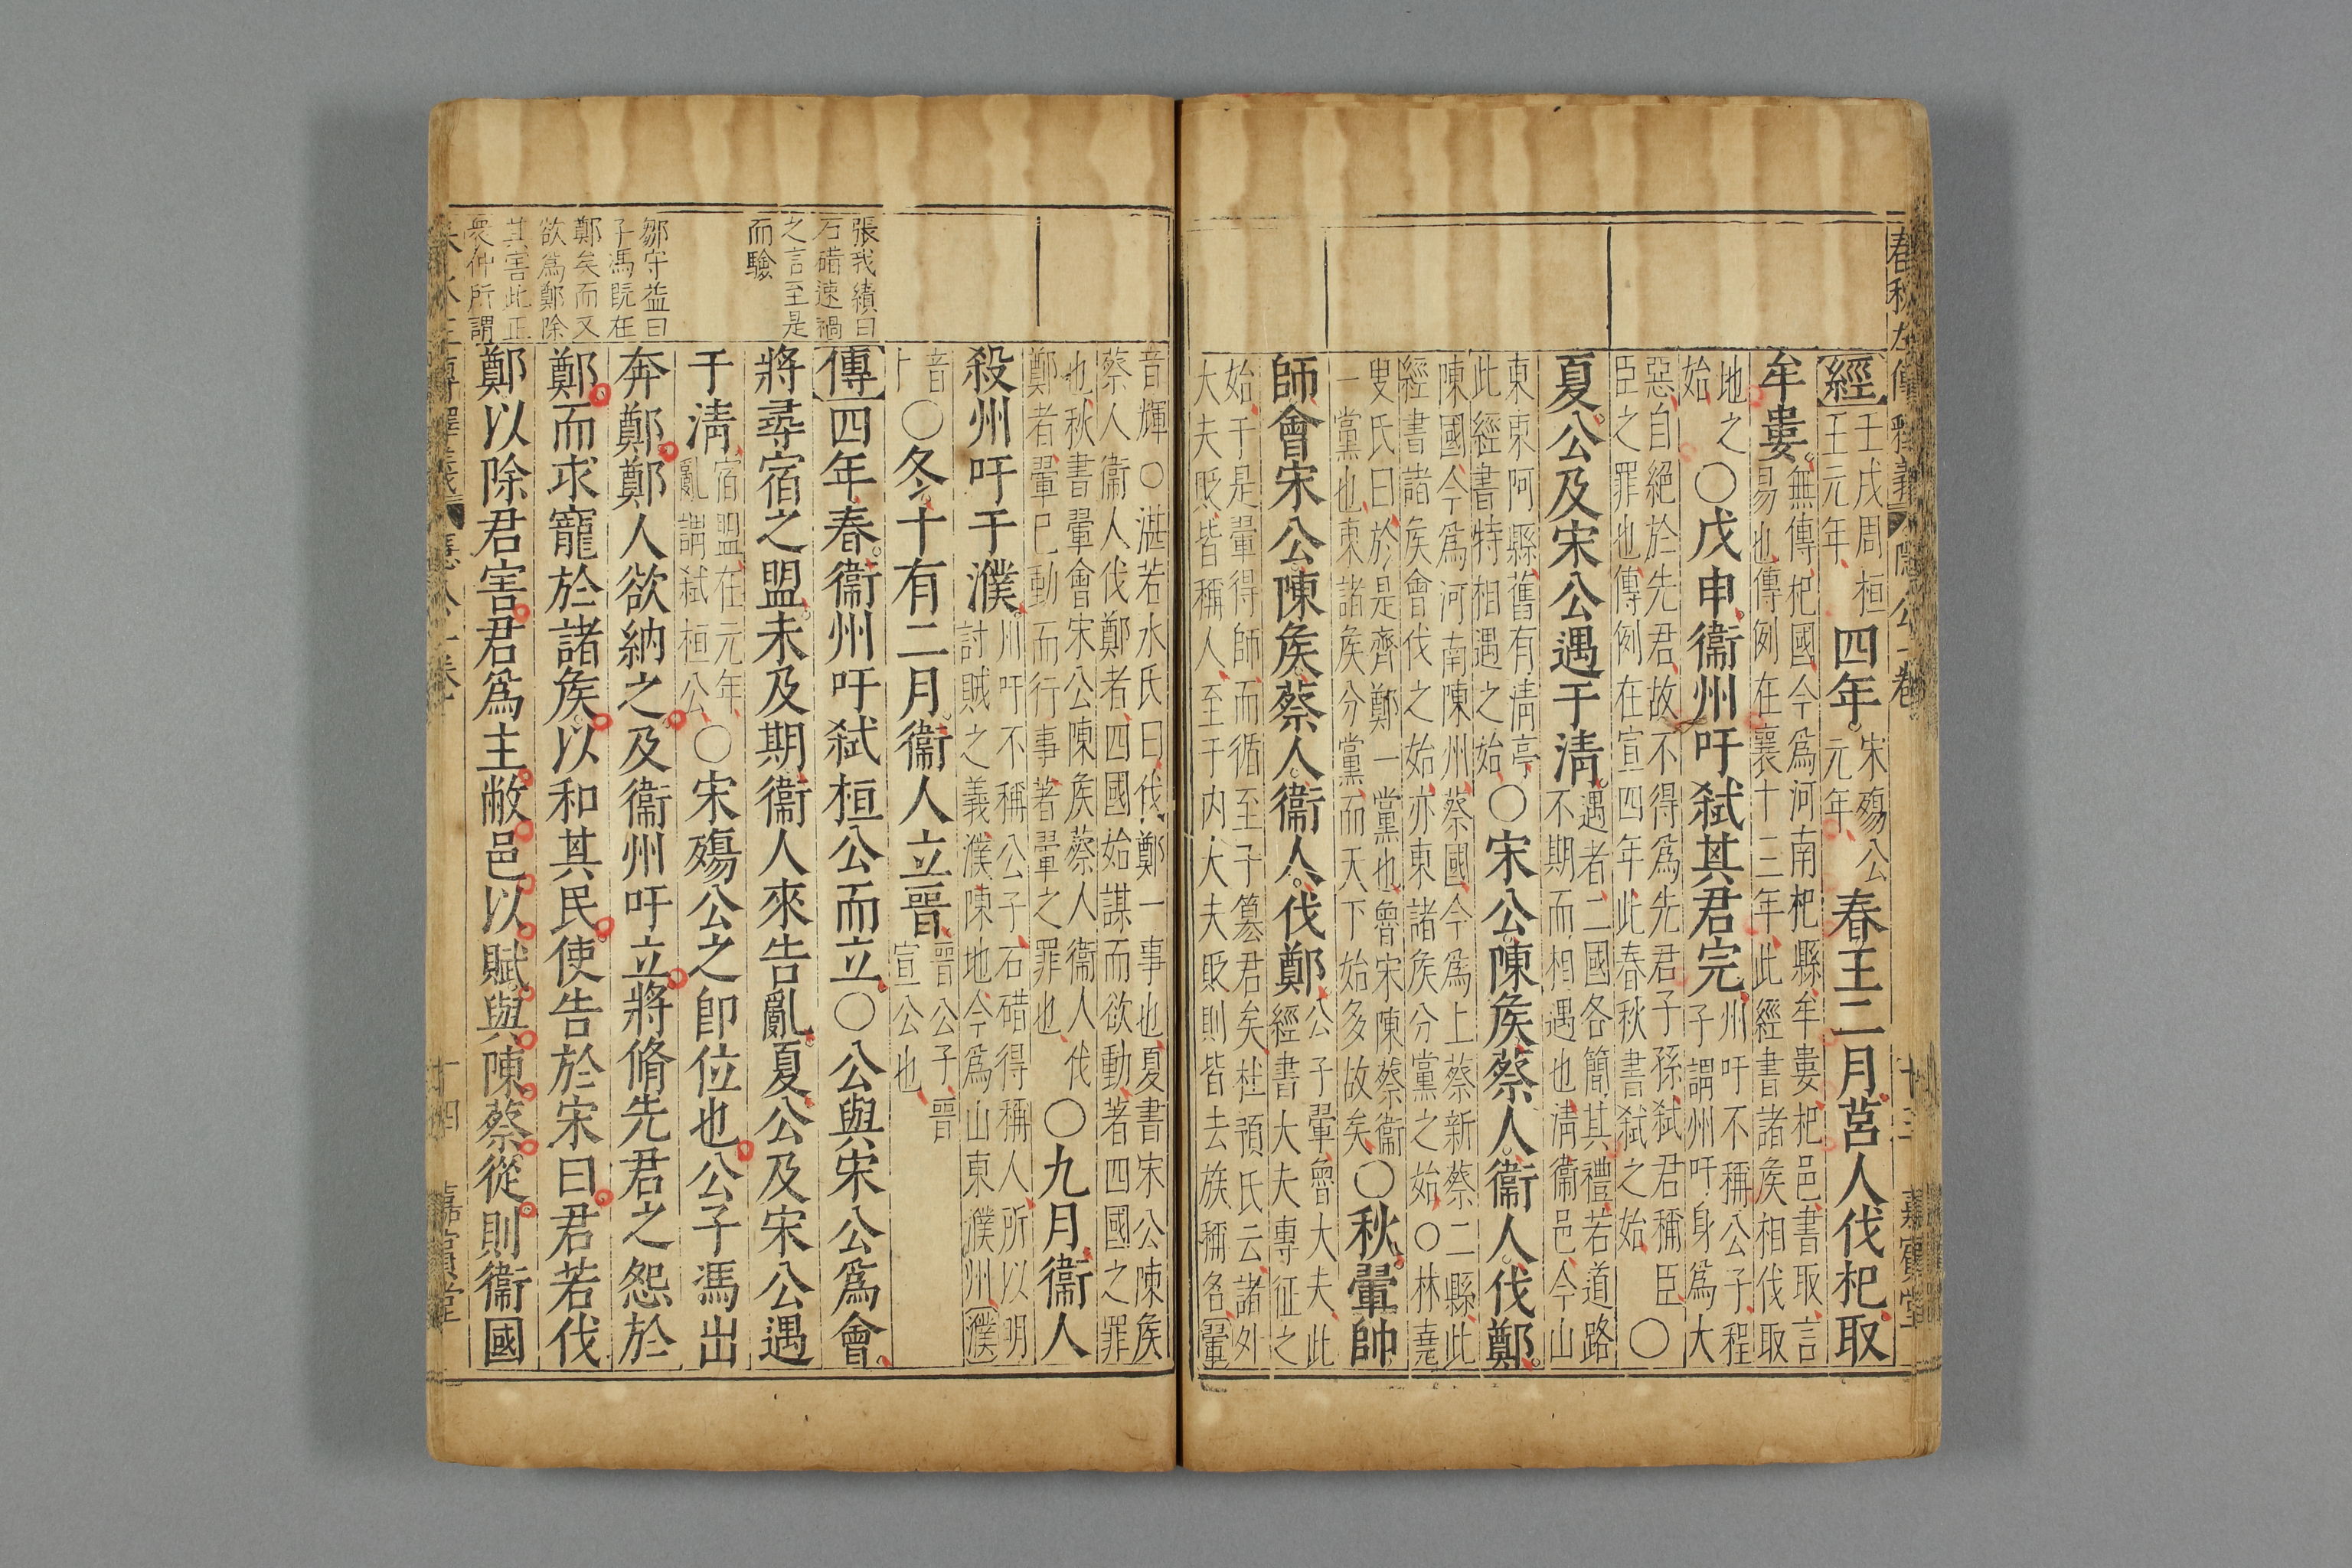 春秋左傳釋義 隱公一卷 十三 嘉賓堂
經 壬戌周桓王元年 四年 宋殤公元年 春王二月莒人伐杞取
牟婁 無傳杞國今為河南杞縣牟婁杞邑書取言
易也傳例在襄十三年此經書諸矦相伐取
地之始○戊申衞州吁弑其君完 州吁不稱公子程
子謂州吁身為大
惡自絕於先君故不得為先君子孫弑君稱臣
臣之罪也傳例在宣四年此春秋書弑之始 ○
夏公及宋公遇于清 遇者二國各簡其禮若道路
不期而相遇也清衞邑今山
東東阿縣舊有清亭
此經書特相遇之始 ○宋公陳矦蔡人衞人伐鄭
陳國今為河南陳州蔡國今為上蔡新蔡二縣此
經書諸矦會伐之始亦東諸矦分黨之始○林堯
叟氏曰於是齊鄭一黨也魯宋陳蔡衞
一黨也東諸矦分黨而天下始多故矣 ○秋翬帥
師會宋公陳矦蔡人衞人伐鄭 公子翬魯大夫此
經書大夫專征之
始于是翬得師而循至于簒君矣杜預氏云諸外
大夫貶皆稱人至于内大夫貶則皆去族稱名翬
音輝○湛若水氏曰伐鄭一事也夏書宋公陳矦
蔡人衞人伐鄭者四國始謀而欲動著四國之罪
也秋書翬會宋公陳矦蔡人衞人伐
鄭者翬已動而行事著翬之罪也 ○九月衞人
殺州吁于濮 州吁不稱公子石碏得稱人所以明
討賊之義濮陳地今為山東濮州濮
音卜○冬十有二月衞人立晉 晉公子晉
宣公也
張我續曰
石碏速禍
之言至是
而驗
傳四年春衞州吁弑桓公而立○公與宋公爲會
將尋宿之盟未及期衞人來告亂夏公及宋公遇
于清 宿盟在元年
亂謂弑桓公 ○宋殤公之卽位也公子馮出
鄒守益曰
子馮既在
鄭矣而又
欲為鄭除
其害此正
衆仲所謂
奔鄭鄭人欲納之及衞州吁立將脩先君之怨於
鄭而求寵於諸矦以和其民使告於宋曰君若伐
鄭以除君害君爲主敝邑以賦與陳蔡從則衞國
十四 嘉賓堂